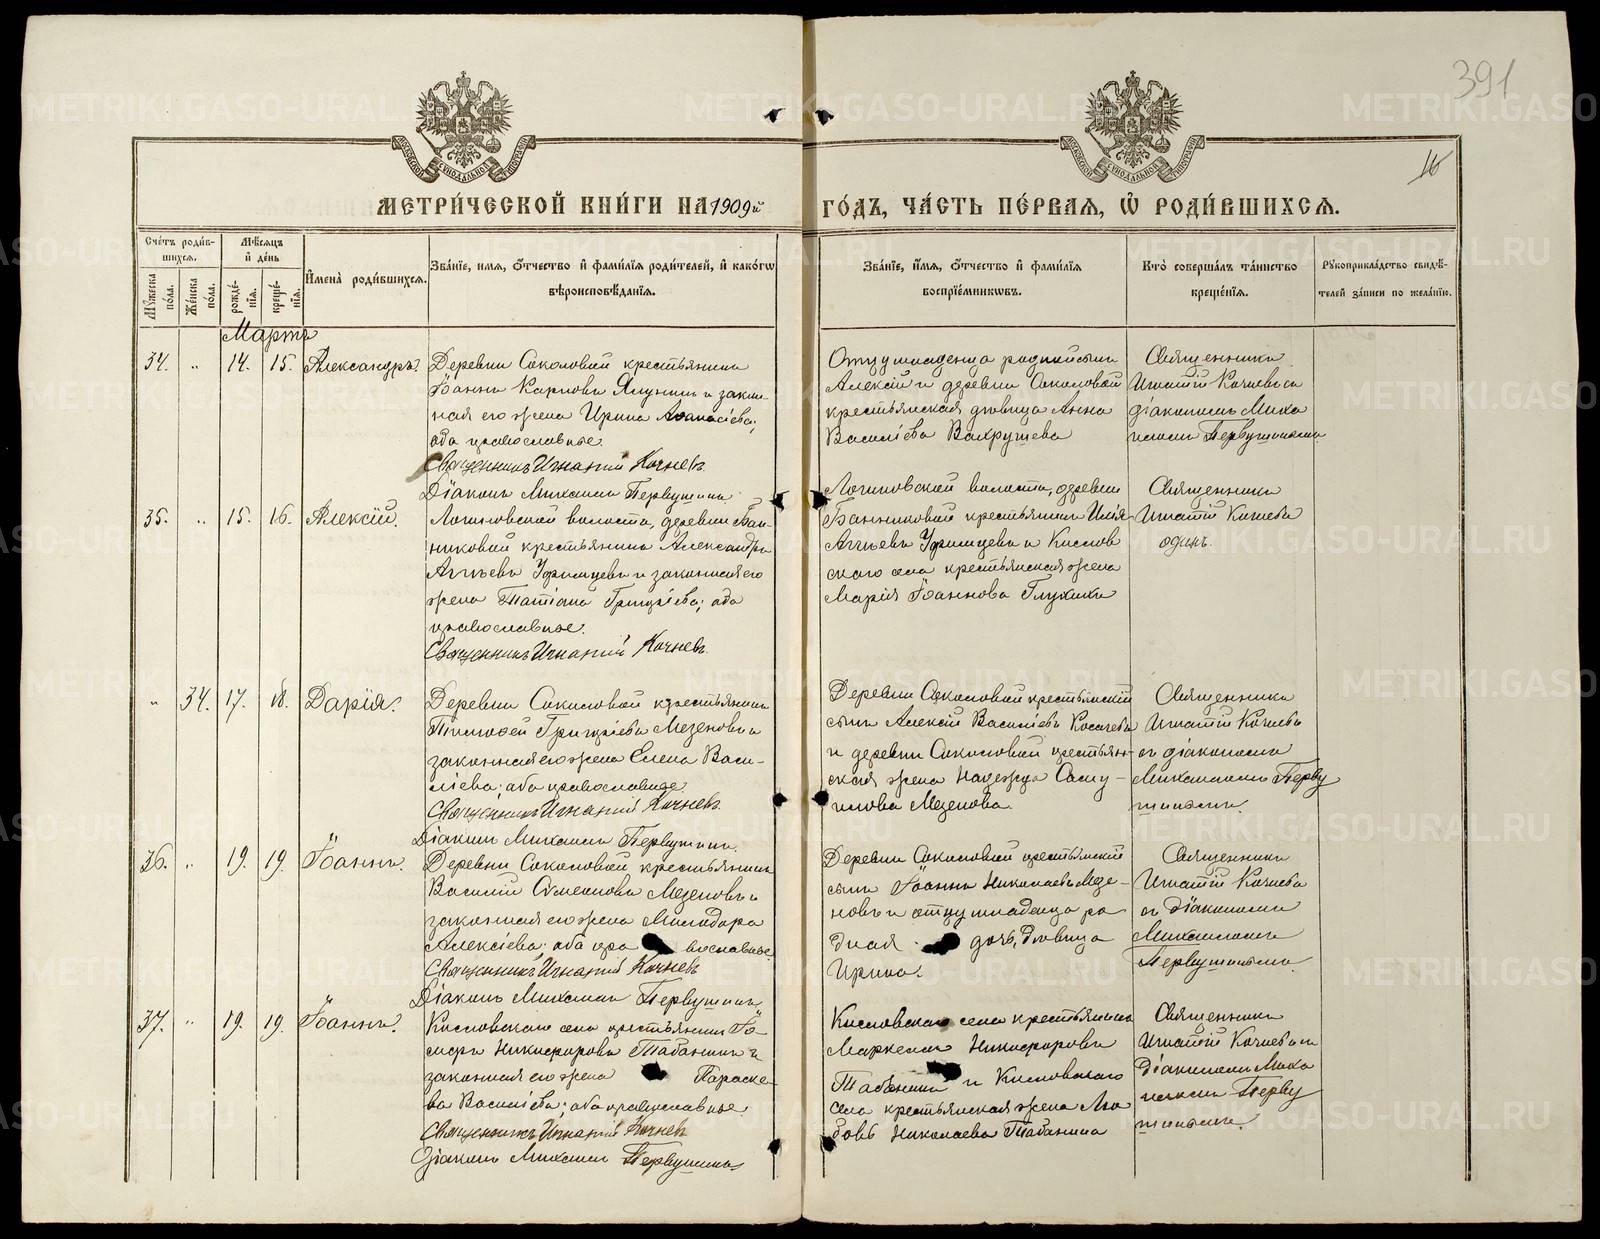 391
16
МЕТРИ́ЧЕСКОЙ КНИ́ГИ НА 1909й ГО́ДЪ, ЧА́СТЬ ПЕ́РВАЯ, Ѡ҆ РОДИ́ВШИХСЯ.
Сче́тъ роди́в-
шихся.
Мꙋ́жеска по́ла.
Же́нска по́ла.
Мѣ́сяцъ
и҆ де́нь
рожде́-
нїя.
креще́-
нїя.
И҆мена̀ роди́вшихся.
Зва́нїе, имя, ѻ҆́тчество и҆ фами́лїя роди́телей, и҆ како́гѡ
вѣроисповѣ́данїя.
Зва́нїе, и҆́мя, ѻ҆́тчество и҆ фами́лїя
воспрїе́мникѡвъ.
Кто̀ соверша́лъ та́инство
креще́нїя.
Рꙋкоприкла́дство свидѣ́-
телей за́писи по жела́нїю.
Марта
34. „ 14. 15. Александръ.
Деревни Соколовой крестьянинъ
Іоаннъ Карповъ Ялунинъ и закон-
ная его жена Ирина Аѳанасіева;
оба православные.
Священникъ Игнатій Кочневъ.
Діаконъ Михаилъ Первушинъ
Отцу младенца родной сынъ
Алексій и деревни Соколовой
крестьянская дѣвица Анна
Василіева Вахрушева
Священникъ
Игнатій Кочневъ съ
діакономъ Миха
иломъ Первушинымъ
35. „ 15. 16. Алексій.
Логиновской волости, деревни Бан-
никовой крестьянинъ Александръ
Аггѣевъ Уфимцевъ и законная его
жена Татіана Григоріева; оба
православные.
Священникъ Игнатій Кочневъ.
Логиновской волости, деревни
Банниковой крестьянинъ Илія
Аггѣевъ Уфимцевъ и Кислов
скаго села крестьянская жена
Марія Іоаннова Глухихъ
Священникъ
Игнатій Кочневъ
одинъ.
„ 34. 17. 18. Дарія.
Деревни Соколовой крестьянинъ
Тимоѳей Григоріевъ Мезеновъ и
законная его жена Елена Васи-
ліева; оба православные.
Священникъ Игнатій Кочневъ.
Діаконъ Михаилъ Первушинъ.
Деревни Соколовой крестьянскій
сынъ Алексій Василіевъ Косачевъ
и деревни Соколовой крестьян-
ская жена Надежда Саму-
илова Мезенова.
Священникъ
Игнатій Кочневъ
съ діакономъ
Михаиломъ Перву
шинымъ.
36. „ 19. 19. Іоаннъ.
Деревни Соколовой крестьянинъ
Василій Симеоновъ Мезеновъ и
законная его жена Милодора
Алексіева; оба пра вославные.
Священникъ Игнатій Кочневъ
Діаконъ Михаилъ Первушинъ
Деревни Соколовой крестьянскій
сынъ Іоаннъ Николаевъ Мезе-
новъ и отцу младенца ро
дная дочь, дѣвица
Ирина.
Священникъ
Игнатій Кочневъ
съ Діакономъ
Михаиломъ
Первушинымъ.
37. „ 19. 19. Іоаннъ.
Кисловскаго села крестьянинъ Іо-
сифъ Никифоровъ Табанинъ и
законная его жена Параске-
ва Василіева; оба православные.
Священникъ Игнатій Кочневъ
Діаконъ Михаилъ Первушинъ
Кисловскаго села крестьянинъ
Маркелъ Никифоровъ
Табанинъ и Кисловскаго
села крестьянская жена Лю
бовь Николаева Табанина
Священникъ
Игнатій Кочневъ съ
Діакономъ Миха
иломъ Перву
шинымъ.